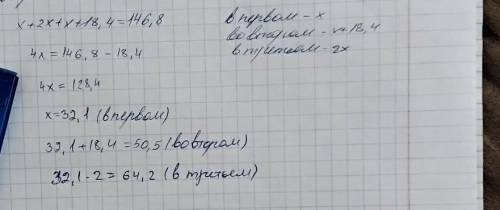 x+2x+x+18,4=146,8
4x=146,8-18,4
4x=128,4
x=32,1 (в первом)
32,1+18,4=50,5 (во втором)
32,1·2=64,2 (в третьем)
в первом - x
во втором - x+18,4
в третьем - 2x